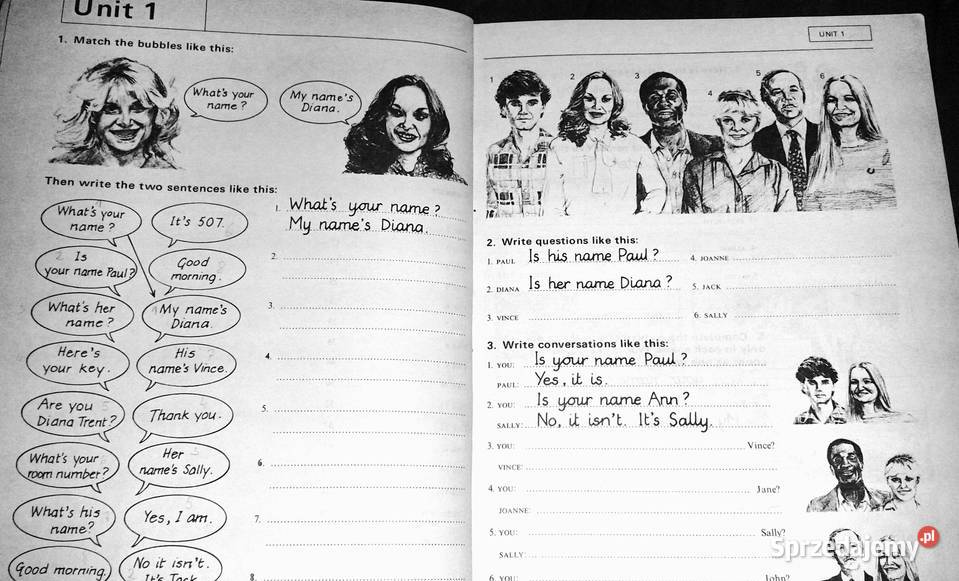 Unit 1
1. Match the bubbles like this:
What's your
name?
My name's
Diana.
Then write the two sentences like this:
What's your
name?
It's 507.
Is
your name Paul?
Good
morning.
What's her
name?
My name's
Diana.
Here's
your key.
His
name's Vince.
Are you
Diana Trent?
Thank you.
What's your
room number?
Her
name's Sally.
What's his
name?
Yes, I am.
Good morning.
No it isn't.
It's Jack
1. What's your name?
My name's Diana.
2.
3.
4.
5.
6.
7.
8.
UNIT 1
1
2
3
4
5
6
2. Write questions like this:
1. PAUL Is his name Paul?
2. DIANA Is her name Diana?
3. VINCE
4. JOANNE
5. JACK
6. SALLY
3. Write conversations like this:
1. YOU: Is your name Paul?
PAUL: Yes, it is.
2. YOU: Is your name Ann?
SALLY: No, it isn't. It's Sally.
3. YOU: Vince?
VINCE:
4. YOU: Jane?
JOANNE:
5. YOU: Sally?
SALLY:
6. YOU: John?
Sprzedajemy.pl